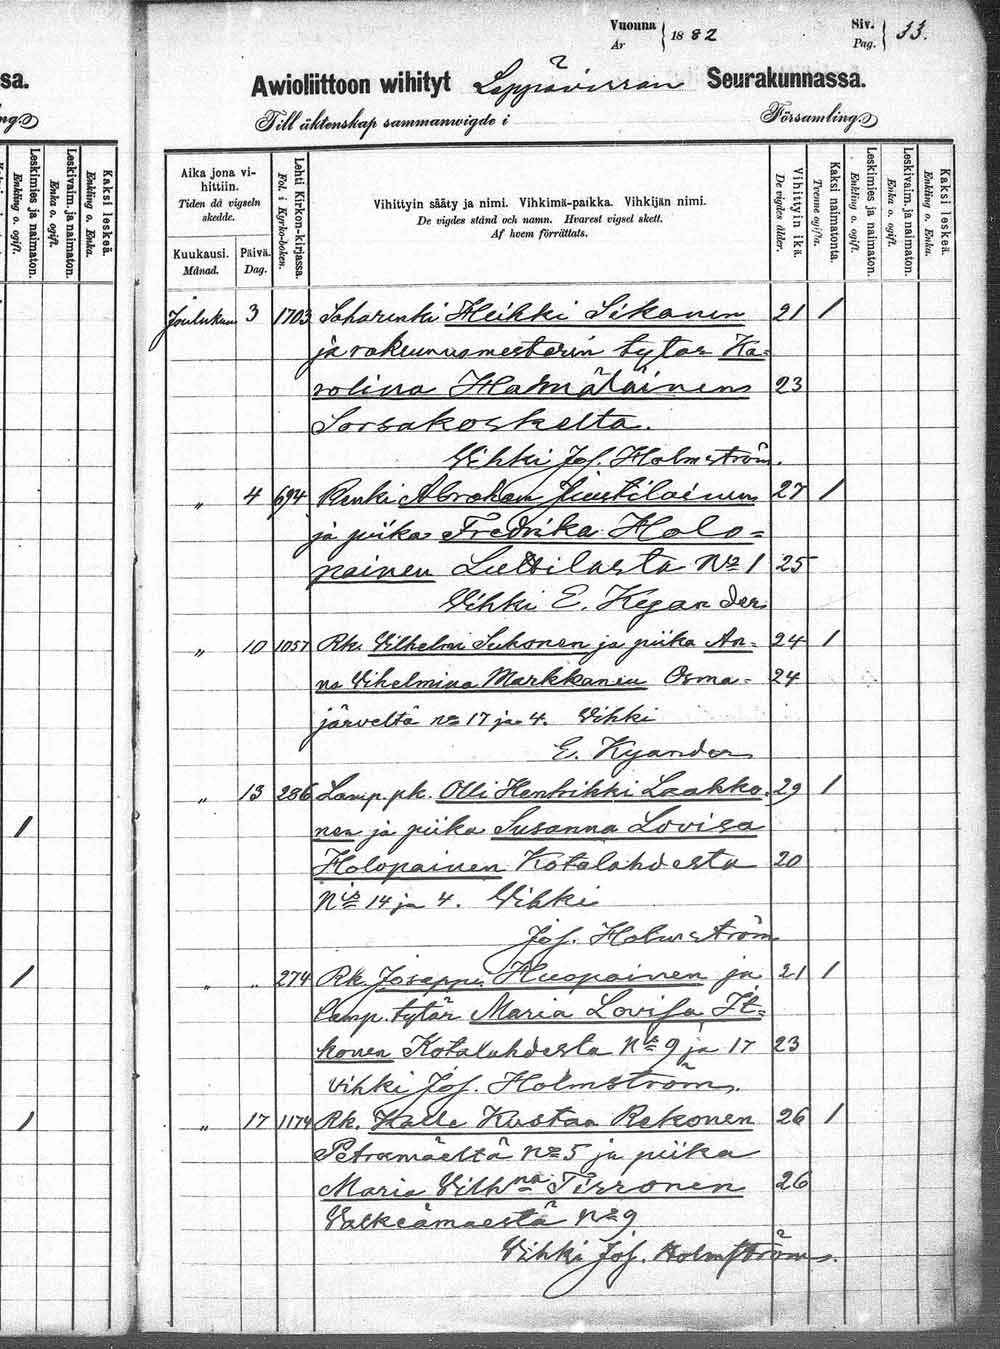 Vuonna
År
1882
Siv.
Pag.
33.
Awioliittoon wihityt Leppävirran Seurakunnassa.
Till äktenskap sammanwigde i Församling.
sa.
ng.
Leskimies ja naimaton.
Enkling o. ogift.
Leskivaim. ja naimaton.
Enka o. ogift.
Kaksi leskeä.
Enkling o. Enka.
Aika jona vi-
hittiin.
Tiden då vigseln
skedde.
Kuukausi.
Månad.
Päivä.
Dag.
Lehti Kirkon-kirjassa.
Fol. i Kyrko-boken.
Vihittyin sääty ja nimi. Vihkimä-paikka. Vihkijän nimi.
De vigdes stånd och namn. Hvarest vigsel skett.
Af hvem förrättats.
Vihittyin ikä.
De vigdes ålder.
Kaksi naimatonta.
Tvenne ogifta.
Leskimies ja naimaton.
Enkling o. ogift.
Leskivaim. ja naimaton.
Enka o. ogift.
Kaksi leskeä.
Enkling o. Enka.
Joulukuu 3 1703 Heikki Sikanen 21 1
ja rakennusmestarin tytär Ka=
rolina Halmäläinen 23
Sorsakoskelta.
Vihki Jos. Holmström.
" 4 694 Renki Abraham 27 1
ja piika Fredrika Holo=
painen No 1 25
Vihki E. Kyander
" 10 1057 Rk. Vilhelm Suhonen ja piika An= 24 1
na Vihelmina Markkanen Osma= 24
järveltä no 17 ja 4. Vihki
E. Kyander
" 13 286 Lamp. pk. Olli Henrikki Laakko= 29 1
nen ja piika Susanna Lovisa
Holopainen Kotalahdesta 20
Nis 14 ja 4. Vihki
Jos. Holmström
" " 274 Rk. Joseppi Huopainen ja 21 1
Lamp. tytär Maria Lovisa It=
konen Kotalahdesta Ns 9 ja 17 23
Vihki Jos. Holmström.
" 17 1174 Rk. Kalle Kustaa Rekonen 26 1
Petromäeltä No 5 ja piika
Maria Vilhna Tirronen 26
Valkeamäestä No 9
Vihki Jos. Holmström.
1
1
1